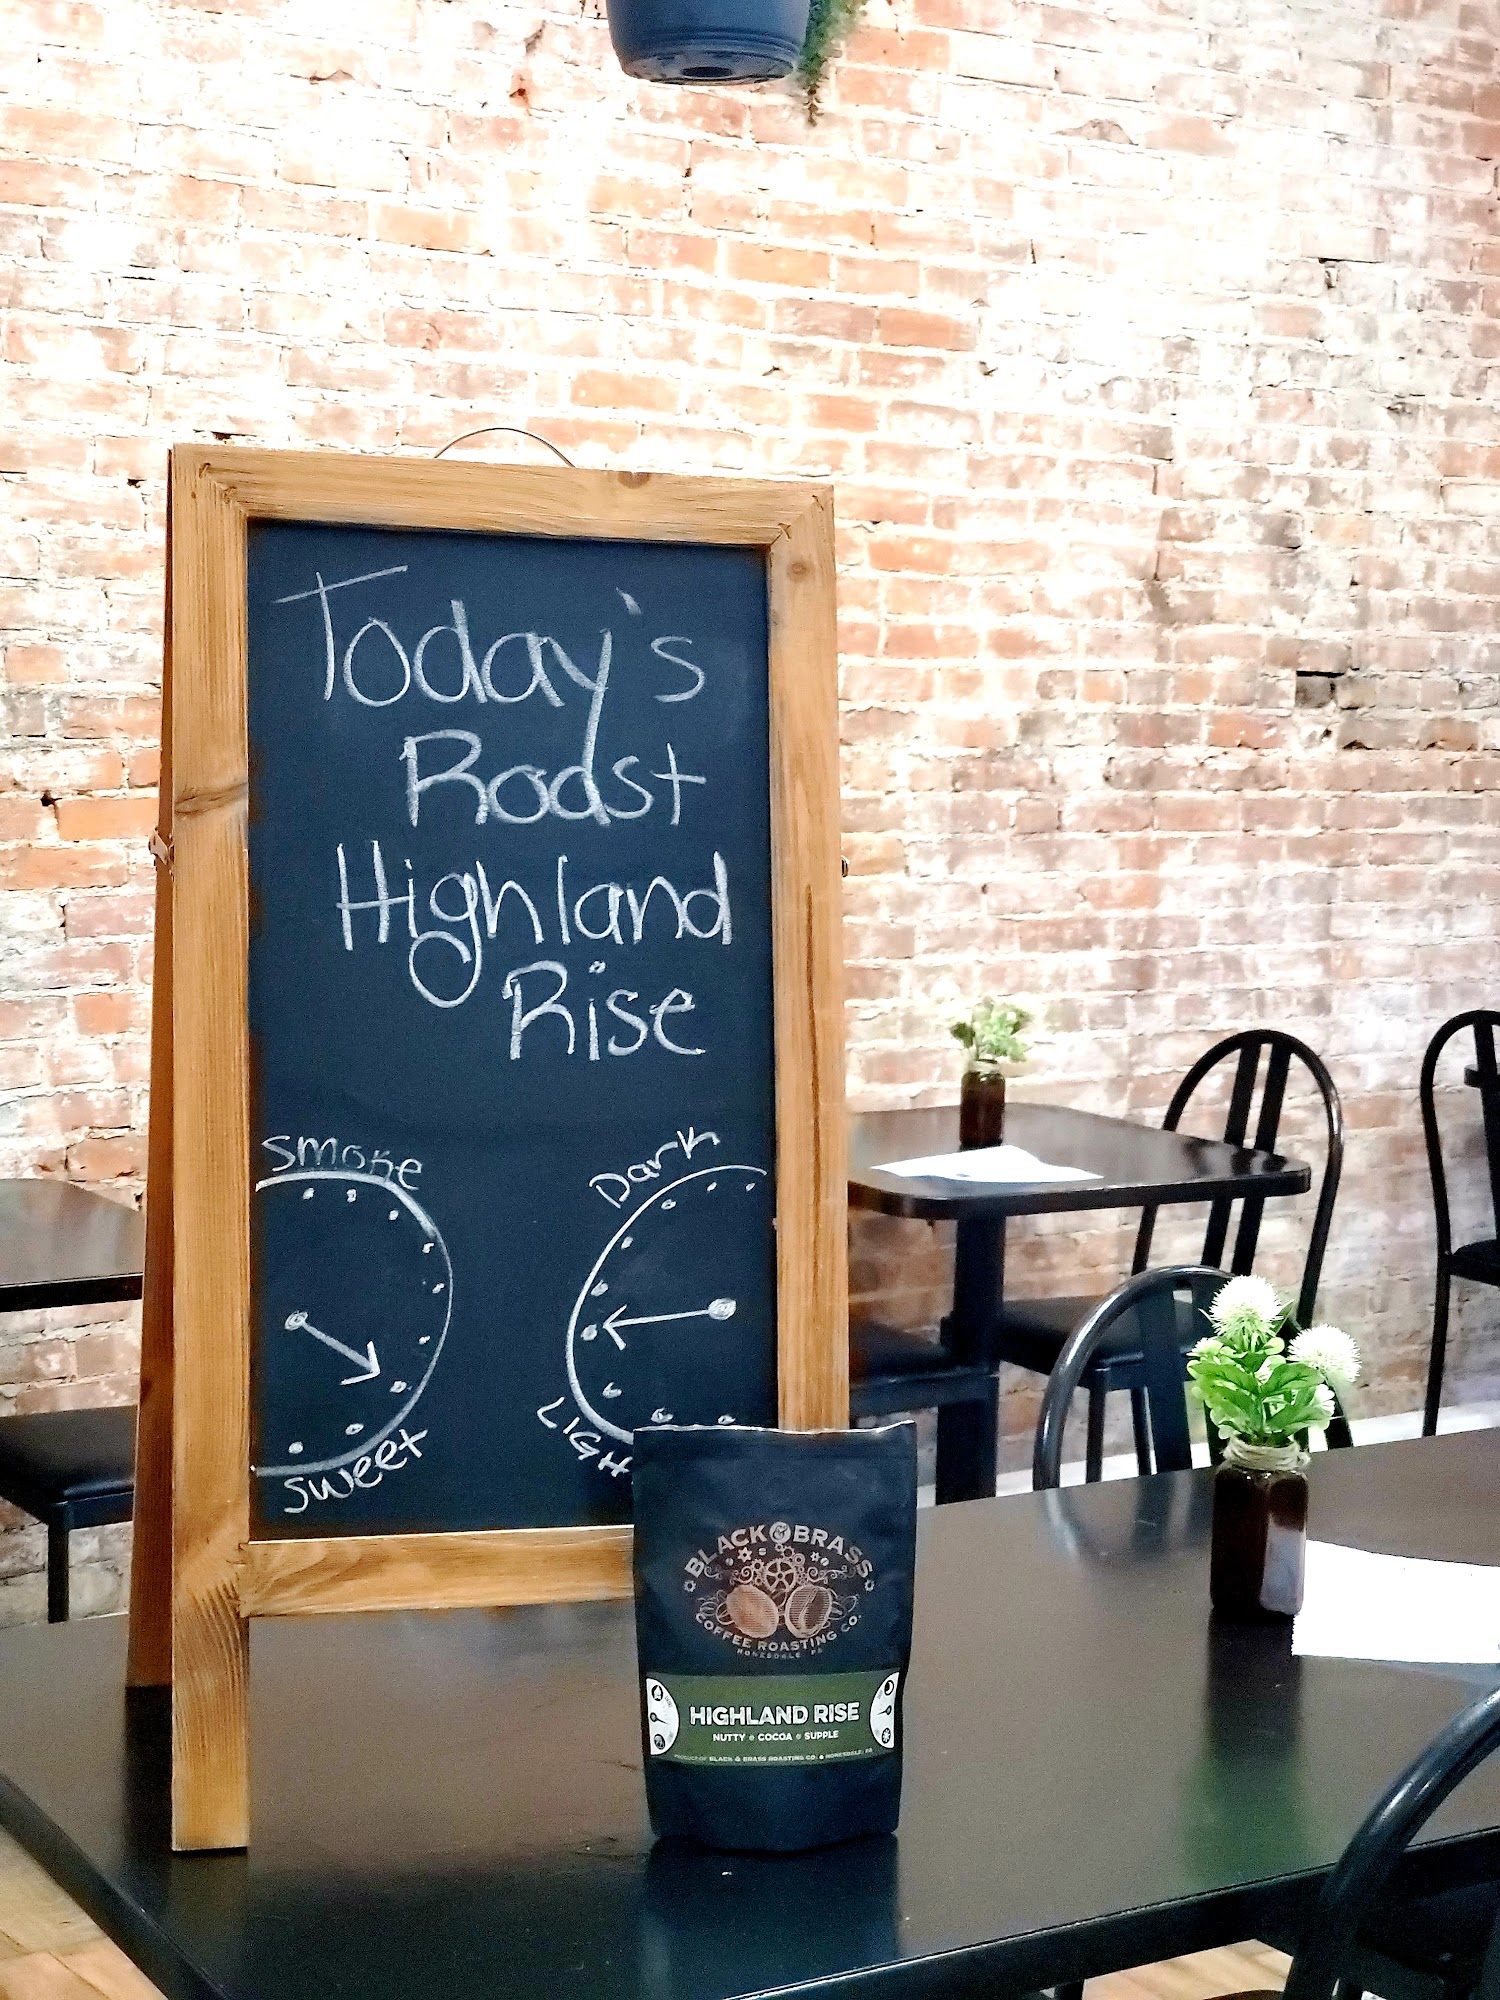 Today's
Roast
Highland
Rise
Smoke
Dark
Sweet
LIGH
BLACK & BRASS
COFFEE ROASTING CO.
HONESDALE, PA
HIGHLAND RISE
NUTTY COCOA SUPPLE
PRODUCT OF BLACK & BRASS ROASTING CO. HONESDALE, PA